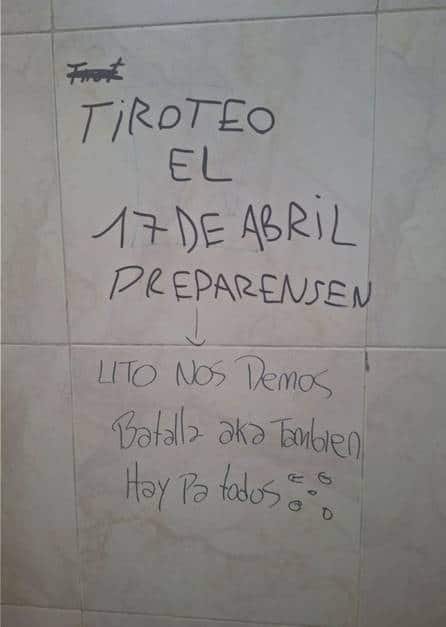 TiROTEO
EL
17 DE ABRiL
PREPARENSEN
LITO NOS Demos
Batalla aka Tambien
Hay Pa todos